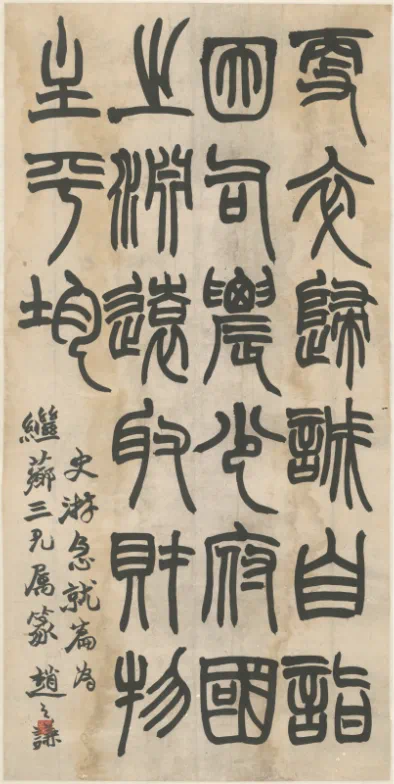 更卒歸誠自詣
因司農少府國
之淵遠取財物
主平均
史游急就篇為
繼薌三兄属篆趙之謙